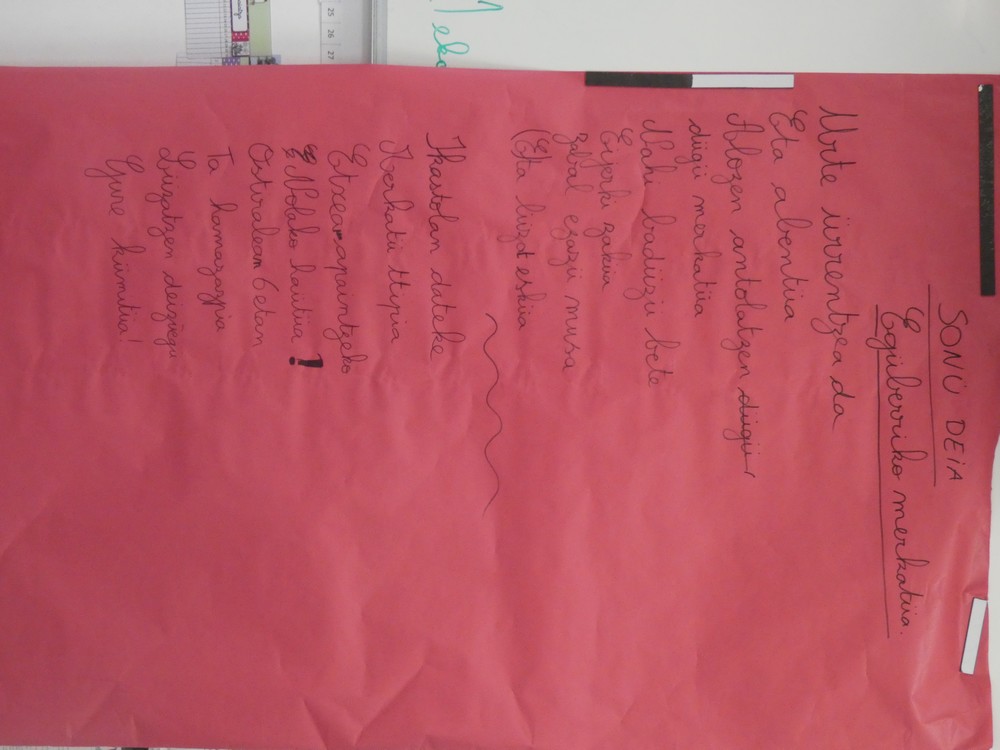 SONÜ DEIA
Egüberriko merkatüa.
Urte ürrentzea da
Eta abentüa
Alozen antolatzen dügü
dügü merkatüa
Nahi badüzü bete
Eijerki zakua
Zabal ezazü musa
(Eta lüzat eskua
Ikastolan diteke
Merkatü ttipia
Etxearapaintzeko
Nolako hautüa!
Ostiralean 6 etan
Ta hamazazpia
Luzatzen deizüegü
Gure kümitia!
25 26 27